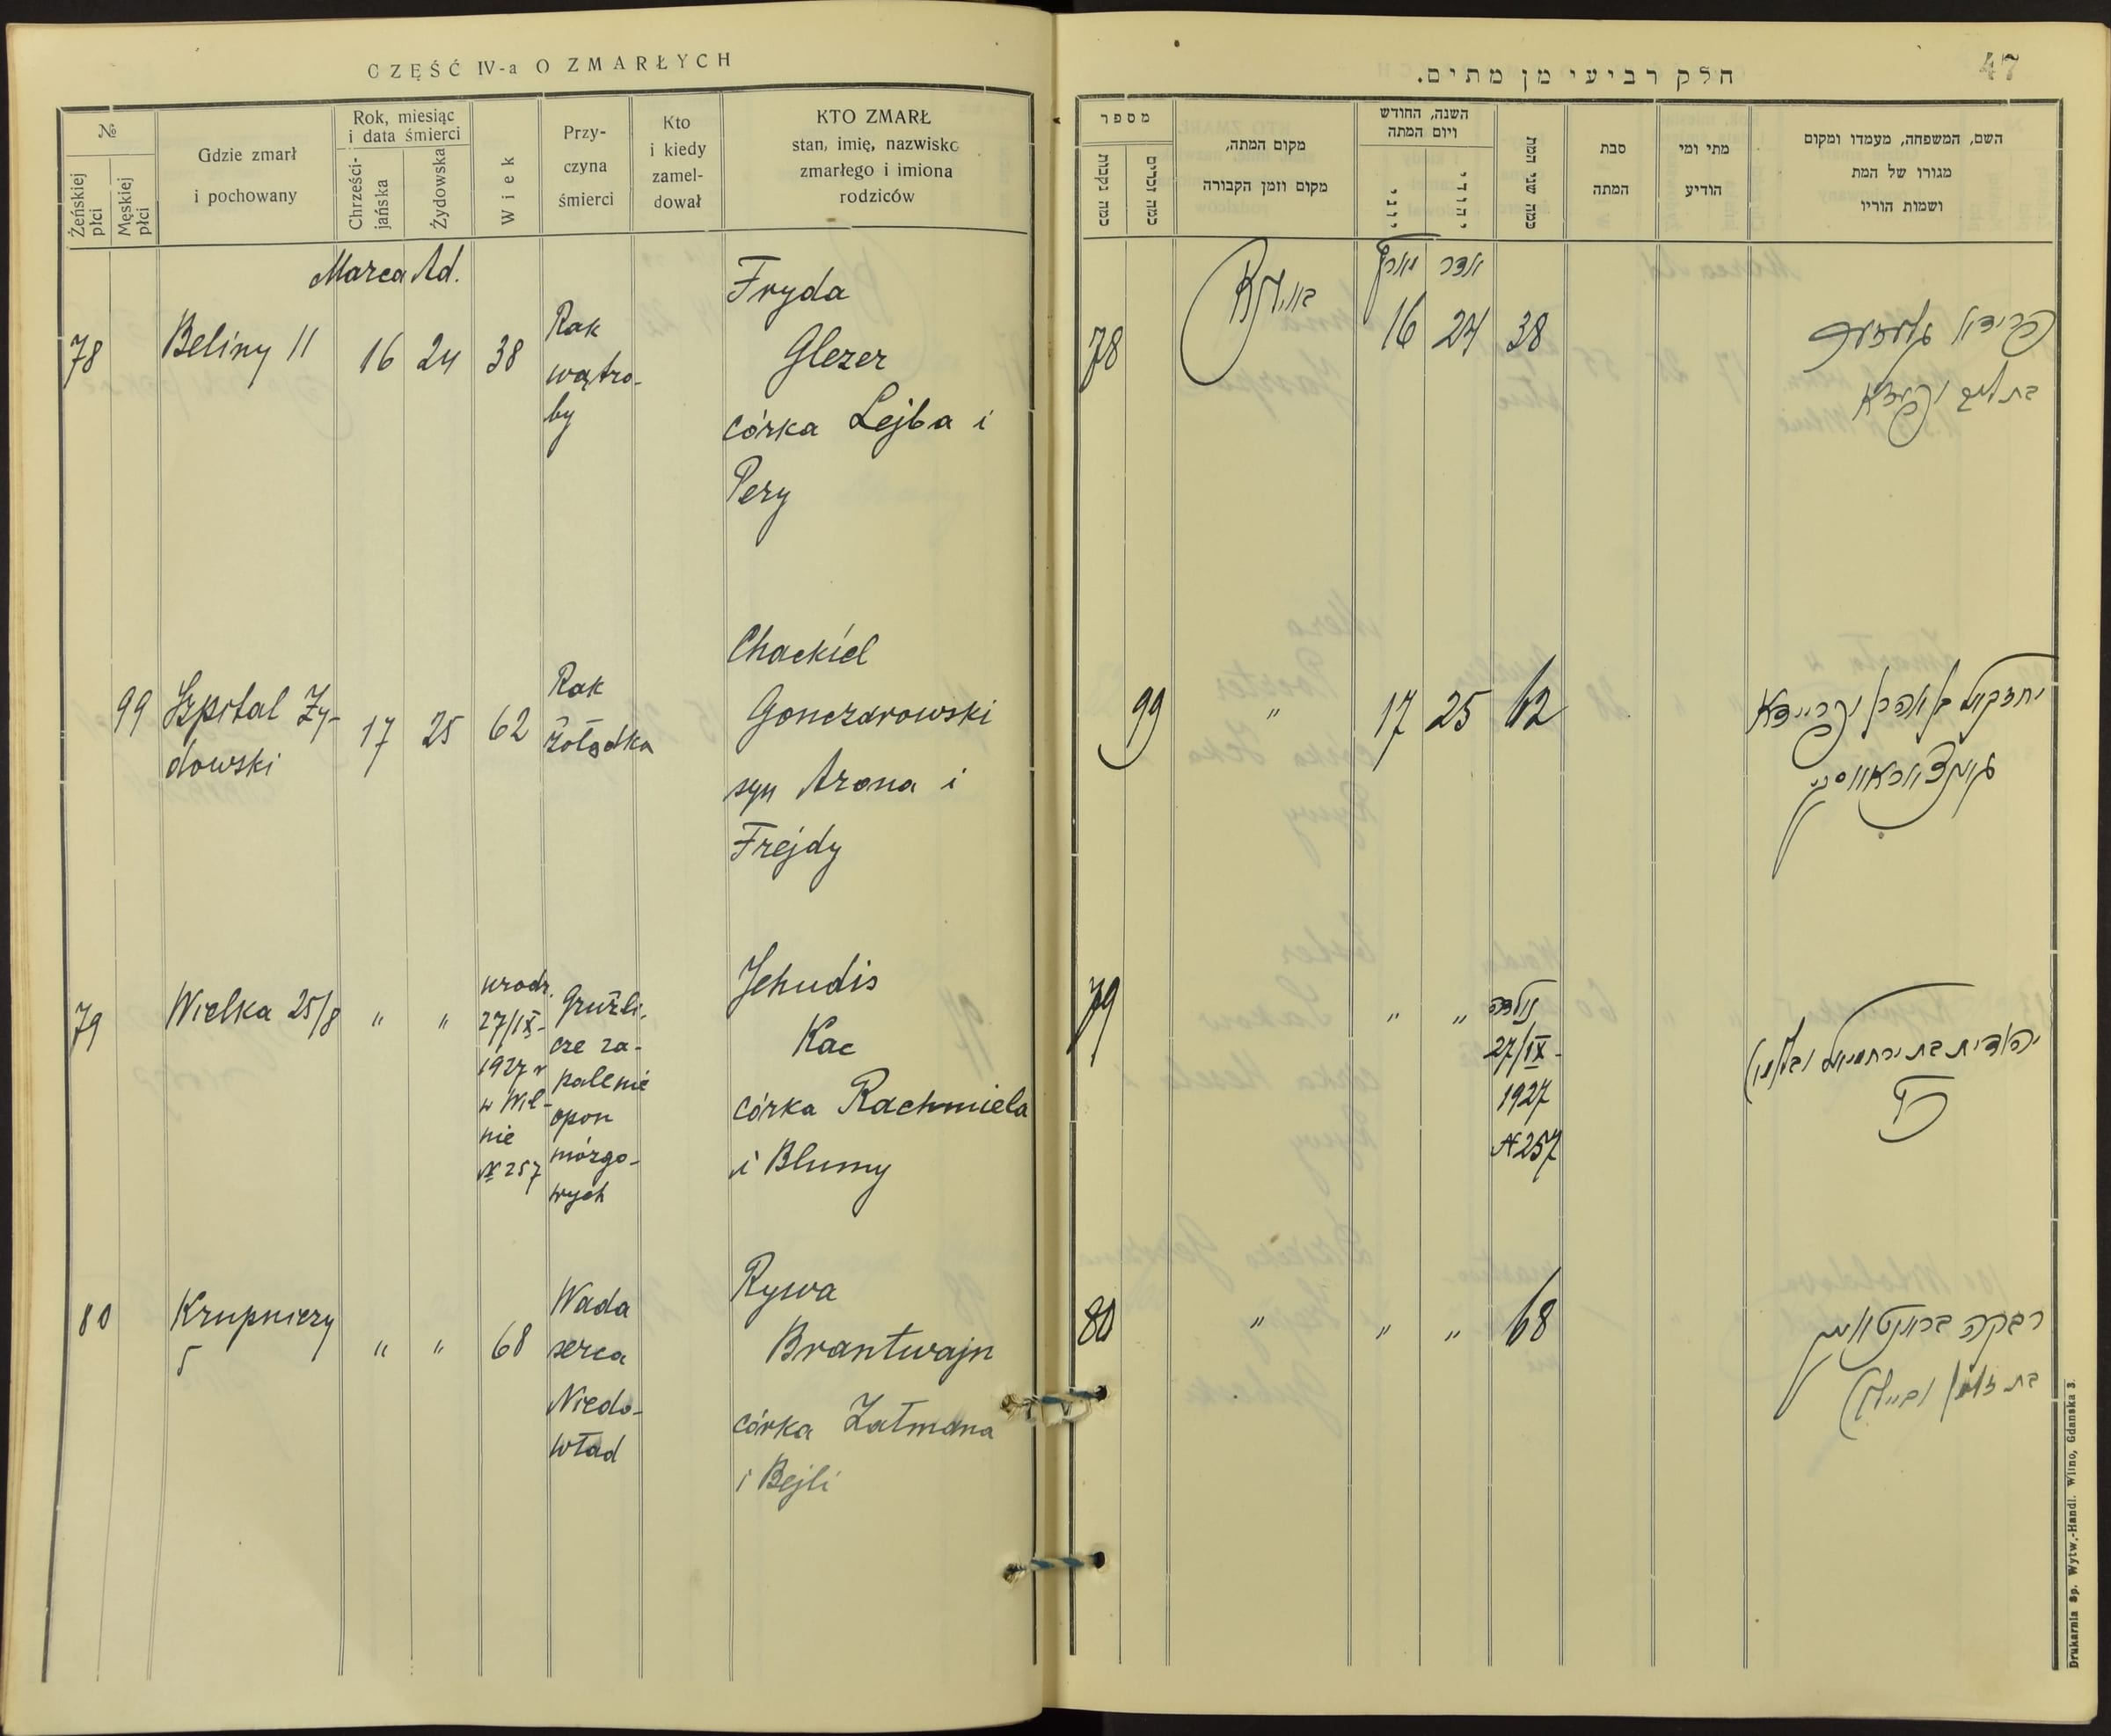 CZĘŚĆ IV-a O ZMARŁYCH
№
Żeńskiej płci
Męskiej płci
Gdzie zmarł
i pochowany
Rok, miesiąc
i data śmierci
Chrześci-
jańska
Żydowska
Wiek
Przy-
czyna
śmierci
Kto
i kiedy
zamel-
dował
KTO ZMARŁ
stan, imię, nazwisko
zmarłego i imiona
rodziców
Marca Ad.
78
Beliny 11
16
24
38
Rak
wątro-
by
Fryda
Glezer
córka Lejba i
Pery
99
Szpital Ży-
dowski
17
25
62
Rak
żołądka
Chackiel
Gonczarowski
syn Arona i
Frejdy
79
Wielka 25/8
"
"
urodz.
27/IX-
1927 r
w Wil-
nie
№ 257
Gruźli-
cze za-
palenie
opon
mózgo-
wych
Jehudis
Kac
córka Rachmiela
i Blumy
80
Krupniczy
5
"
"
68
Wada
serca
Niedo-
wład
Rywa
Brantwajn
córka Załmana
i Bejli
47
חלק רביעי מן מתים.
מספר
כמה נקבות
כמה זכרים
מקום המתה,
מקום וזמן הקבורה
השנה, החודש
ויום המתה
יוני
יהודי
כמה שני המת
סבת
המתה
מתי ומי
הודיע
השם, המשפחה, מעמדו ומקום
מגורו של המת
ושמות הוריו
מארץ
אדר
78
ווילנא
16
24
38
פרידא גלעזער
בת ליב ופערא
99
"
17
25
62
יחזקאל בן אהרן ופריידא
גאנצאראווסקי
79
"
"
נולדה
27/IX-
1927
№ 257
יהודית בת ירחמיאל ובלומא
כץ
80
"
"
"
68
רבקה בראנטוויין
בת זלמן וביילא
Drukarnia Sp. Wytw.-Handl. Wilno, Gdańska 3.